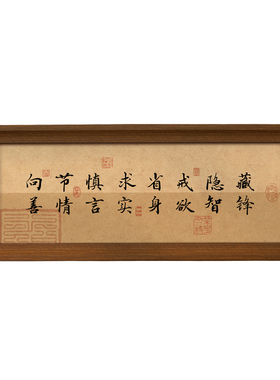 藏锋
隐智
戒欲
省身
求实
慎言
节情
向善